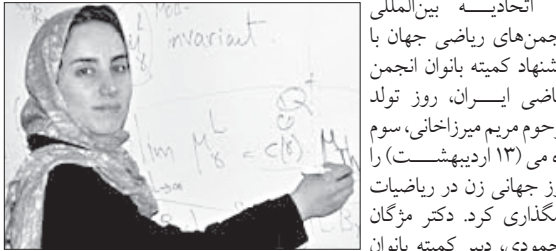 اتحادیه بین‌المللی
جمن‌های ریاضی جهان با
شنهاد کمیته بانوان انجمن
اضی ایران، روز تولد
حوم مریم میرزاخانی، سوم
ه می (۱۳ اردیبهشت) را
ز جهانی زن در ریاضیات
مگذاری کرد. دکتر مژگان
حمودی، دبیر کمیته بانوان
invariant.
lim